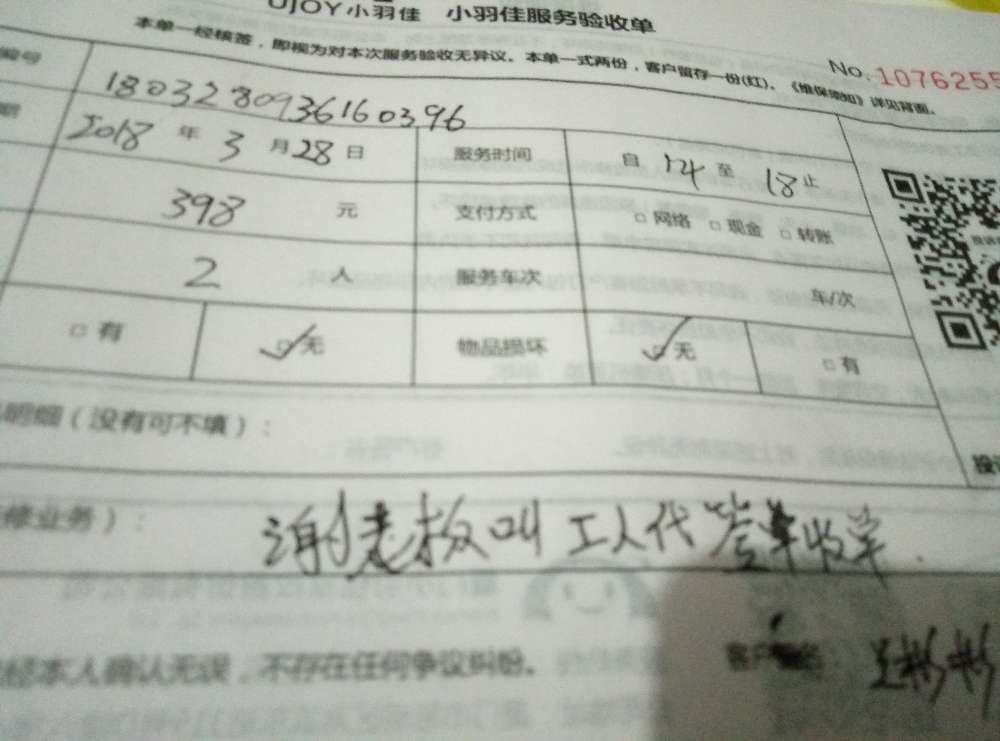 UJOY小羽佳 小羽佳服务验收单
本单一经核签，即视为对本次服务验收无异议。本单一式两份，客户留存一份(红)。《维保须知》详见背面。
No. 1076255
编号 180328093616 0396
2018 年 3 月 28 日 服务时间 自 14 至 18 止
398 元 支付方式 □ 网络 □ 现金 □ 转账
2 人 服务车次 车/次
□ 有 ☑ 无 物品损坏 ☑ 无 □ 有
明细（没有可不填）：
修业务）： 谢老板叫工人代签单收单.
经本人确认无误，不存在任何争议纠纷。
客户 名